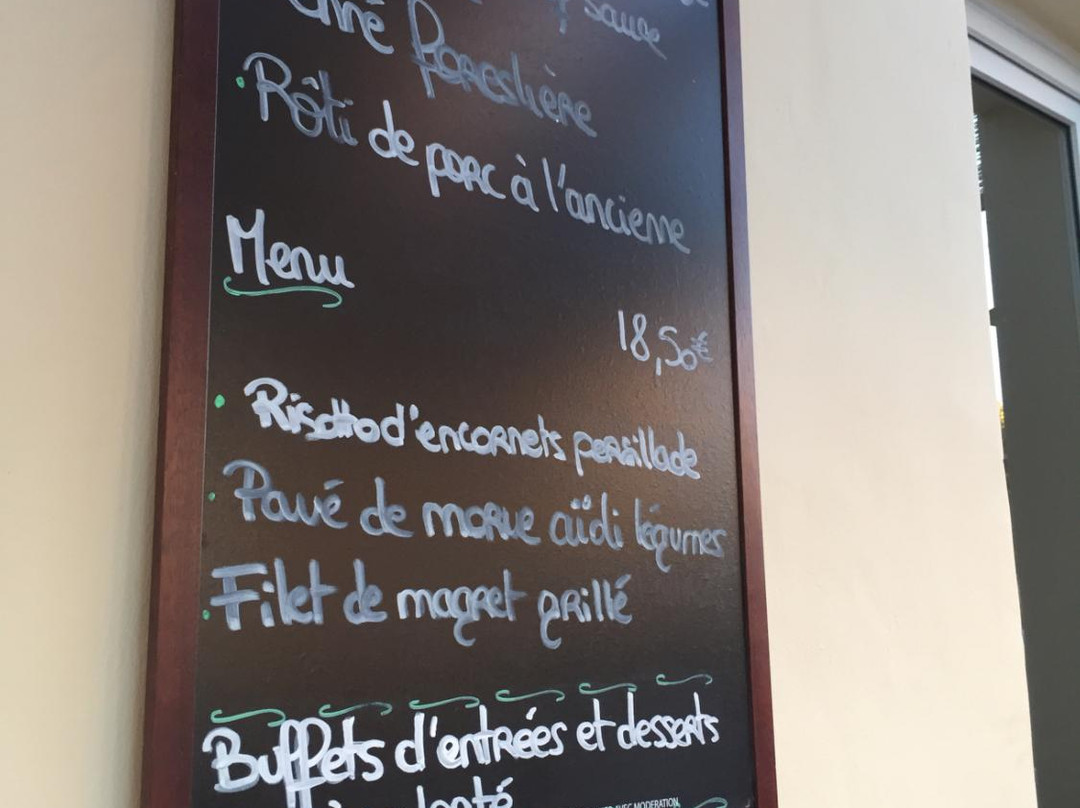 sauce
Forestière
Rôti de porc à l'ancienne
Menu
18,50€
Risotto d'encornets persillade
Pavé de morue aïoli légumes
Filet de magret grillé
Buffets d'entrées et desserts
AVEC MODERATION